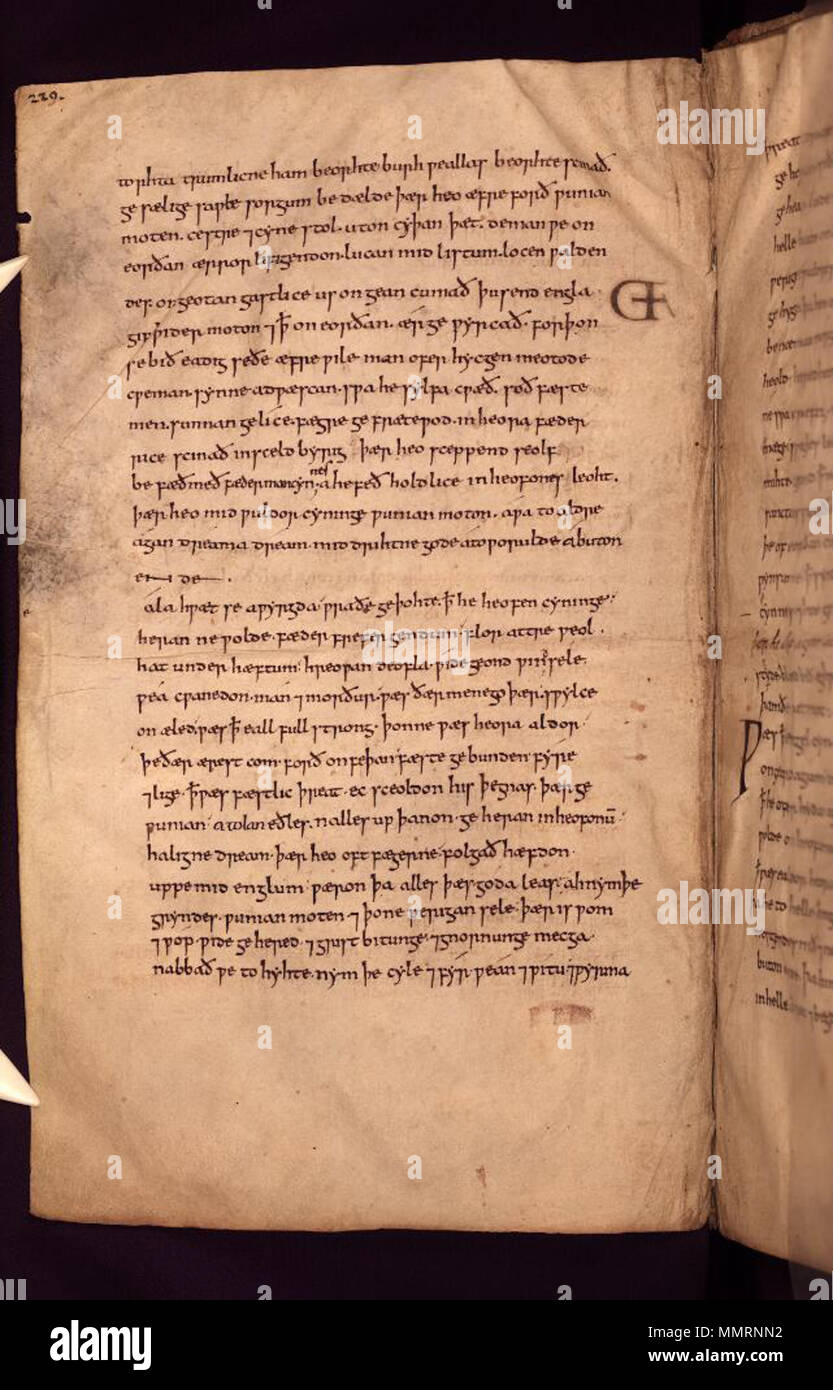 229.
torhta trumlicne ham beorhte burh ƿeallas beorhte scinað.
ge sælige saƿle sorgum be dælde þær heo æfre forð ƿunian
moten. cestre ⁊ cyne stol. uton cyþan þæt. deman ƿe on
eorðan ærror lifigendon. lucan mid listum. locen ƿalden
des. ongeotan gastlice us ongean cumað þusend engla
gif þider moton ⁊ ꝥ on eorðan. ær ge ƿyrcað. forþon
se bið eadig seðe æfre ƿile man ofer hycgen meotode
cƿeman. synne adƿæscan. sƿa he sylfa cƿæð. soð fæste
men. sunnan gelice. fægre ge frætewod. in heora fæder
rice scinað in sceld byrig þær heo sceppend seolf
be fæðmeð fæder mancynnes. ahefeð holdlice in heofones leoht.
þær heo mid ƿuldor cyninge ƿunian moton. aƿa to aldre
agan dreama dream. mid drihtne gode a to ƿorulde a buton
en de.
ala hƿæt se aƿyrgda ƿraðe geþohte. ꝥ he heofen cyninge.
heran ne ƿolde. fæder frefergendum. flor attre ƿeol.
hat under hæftum. hreopan deofla. ƿide geond ƿinsele.
ƿea cƿanedon. man ⁊ morður. ƿæs ðær menego þær. sƿylce
onæled. ƿæs ꝥ eall full strong. þonne ƿæs heora aldor.
þe ðær ærest com. forð on feþan fæste gebunden. fyre
⁊ lige. ꝥ ƿæs fæstlic þreat. ec sceoldon his þegnas. þær ge
ƿunian. atolan eðles. nalles up þanon. ge heran in heofonū.
haligne dream. þær heo oft fægerne. folgað hæfdon.
uppe mid englum ƿæron þa alles þæs goda leas. ah nymþe
gryndes. ƿunian moten ⁊ þone ƿerigan sele. þær is ƿom
⁊ ƿop. ƿide gehered. ⁊ grist bitunge. ⁊ gnornunge mecga.
nabbað ƿe to hyhte. nym þe cyle ⁊ fyr. ƿean ⁊ ƿitu. ⁊ ƿyrma
alamy
Image ID: MMRNN2
www.alamy.com